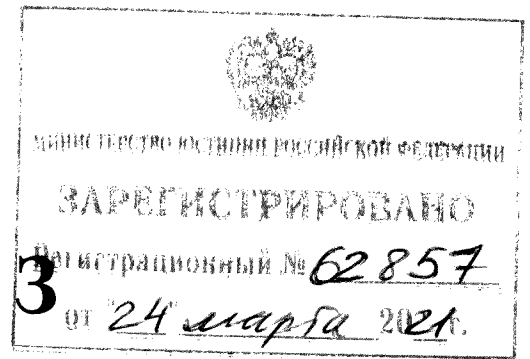 МИНИСТЕРСТВО ЮСТИЦИИ РОССИЙСКОЙ ФЕДЕРАЦИИ
ЗАРЕГИСТРИРОВАНО
Регистрационный № 62857
от "24" марта 2021 г.
З